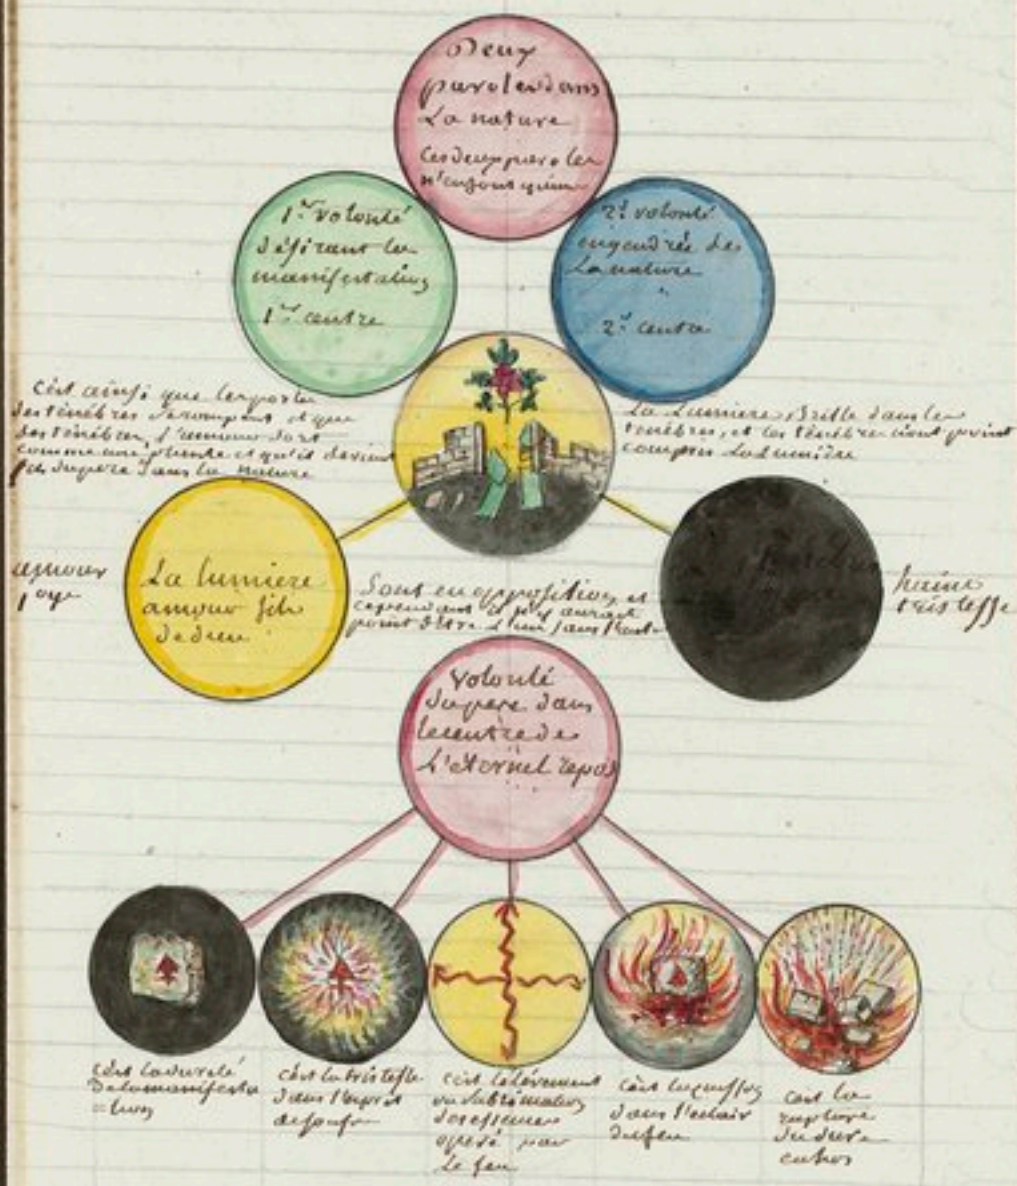 Deux
paroles dans
La nature
Ces deux paroles
n'en font qu'une
1re volonté
désirant la
manifestation
1er centre
2e volonté
engendrée de
La nature
2e centre
C'est ainsi que les portes
des ténèbres se rompent et que
des ténèbres, l'amour sort
comme une plante et qu'il devient
dans la nature
La Lumiere Brille dans les
ténèbres, et les ténèbres n'ont point
compris La Lumière
amour
joye
La lumiere
amour fils
de dieu
Sont en opposition et
cependant il n'y aurait
point d'être l'un sans l'autre
haine
tristesse
Volonté
du pere dans
le centre de
L'éternel repos
C'est la dureté
de la manifesta
= tion
C'est la tristesse
dans l'esprit
de soufre
C'est l'élévement
ou sublimation
des essences
opéré par
Le feu
C'est
dans l'éclair
du feu
C'est la
rupture
du dure